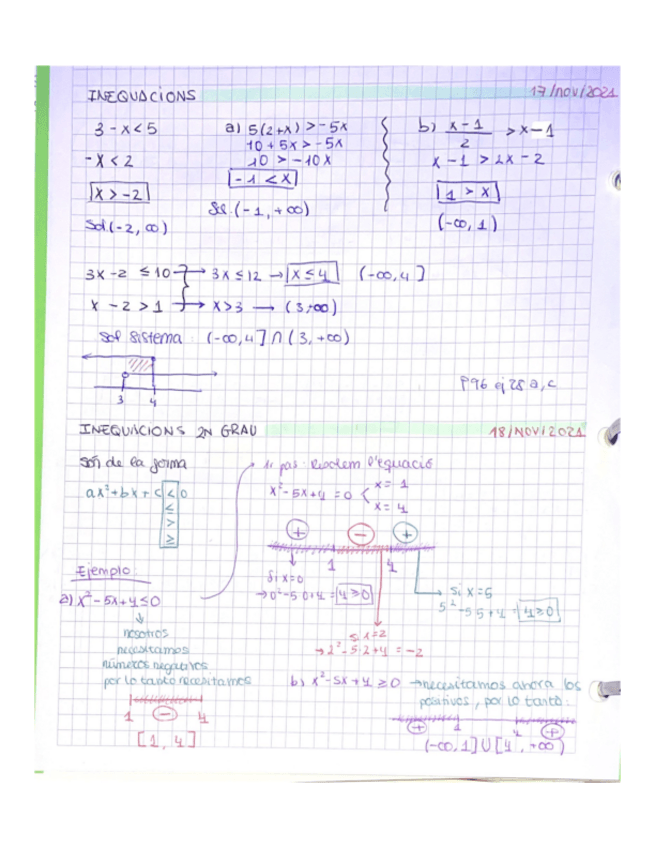 INEQUACIONS 17/nov/2021
3 - x < 5
-x < 2
x > -2
Sol (-2, ∞)
a) 5(2+x) > -5x
10 + 5x > -5x
10 > -10x
-1 < x
Sol. (-1, +∞)
b) x-1 / 2 > x-1
x - 1 > 2x - 2
1 > x
(-∞, 1)
3x - 2 ≤ 10 → 3x ≤ 12 → x ≤ 4 (-∞, 4]
x - 2 > 1 → x > 3 → (3, ∞)
Sol sistema: (-∞, 4] ∩ (3, +∞)
3 4
P96 ej 28 a, c
INEQUACIONS 2N GRAU 18/NOV/2021
Són de la forma
ax²+bx+c < 0
≤
>
≥
1r pas: Resolem l'equació
x²-5x+4 = 0
x = 1
x = 4
+ - +
1 4
Si x=0
→ 0²-5·0+4 = 4 ≥ 0
Si x=5
5²-5·5+4 = 4 ≥ 0
Si x=2
→ 2²-5·2+4 = -2
Ejemplo:
a) x²-5x+4 ≤ 0
nosotros
necesitamos
números negativos
por lo tanto necesitamos
1 - 4
[1, 4]
b) x²-5x+4 ≥ 0 → necesitamos ahora los
positivos, por lo tanto:
+ 1 4 +
(-∞, 1] U [4, +∞)